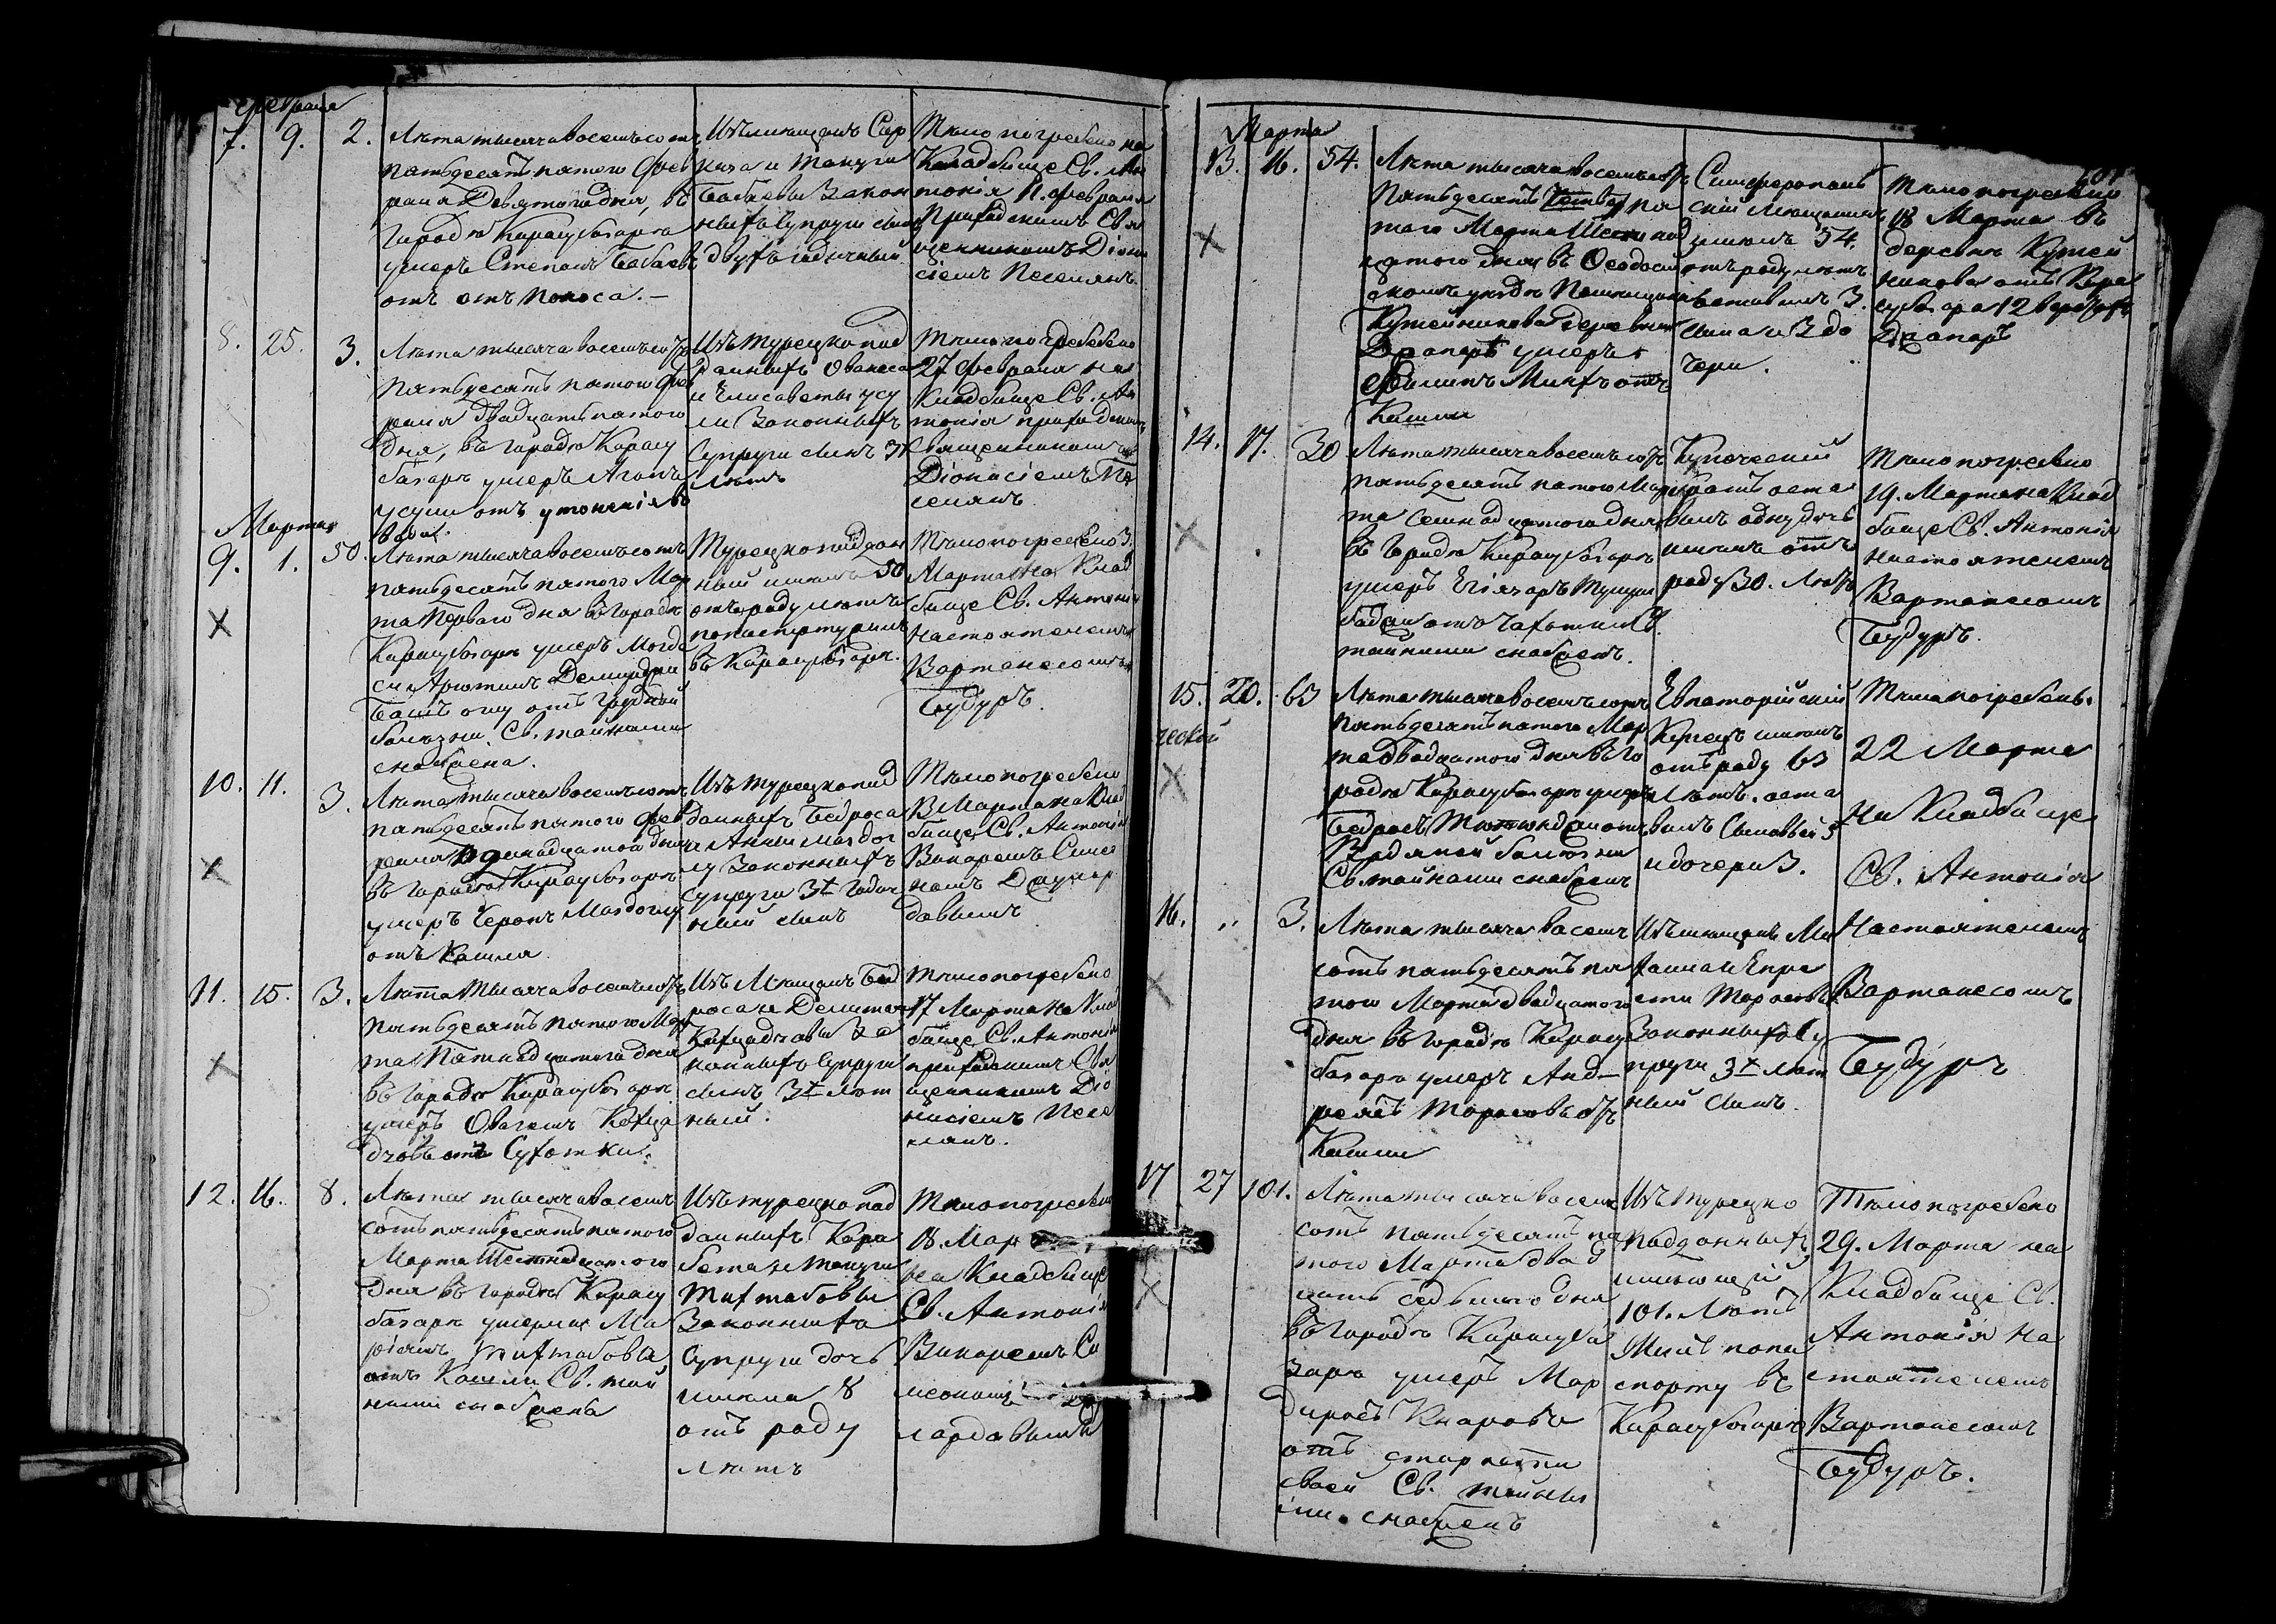 Февраля
7. 9. 2.
Лета тысяча восемьсотъ
пятьдесятъ пятого Фев
раля Девятого дня, въ
городѣ Карасубазарѣ
умеръ Степанъ Бабаевъ
отъ отъ поноса.—
Изъ мещанъ Сар
киза и Мануши
Бабаевы Закон
ныхъ Супруги сынъ
двухъ годичный
Тѣло погребено на
Кладбище Св. Ан
тонія 11. февраля
Приходскимъ Свя
щенникомъ Діони
сіемъ
8. 25. 3.
Лѣта тысяча восемьсотъ
пятьдесятъ пятого Фев
раля двадцать пятого
дня, въ городѣ Карасу
базарѣ умеръ Агопъ
отъ утоненія въ
воды.
Изъ Турецко под
данныхъ Ованеса
и Елисаветы
Законныхъ
Супруги сынъ 3х
лѣтъ
Тѣло погребено
27 февраля на
Кладбище Св. Ан
тонія приходскимъ
Священникомъ
Діонисіемъ
Марта
9. 1. 50.
Лѣта тысяча восемьсотъ
пятьдесятъ пятого Мар
та Перваго дня въ городѣ
Карасубазарѣ умеръ
Арютинъ
отъ грудной
болѣзни. Св. тайнами
снабжена.
Турецкоподдан
ный имѣлъ 50
отъ роду лѣтъ
по паспорту жилъ
въ Карасубазарѣ.
Тѣло погребено 3.
Марта на Клад
бище Св. Антонія
Настоятелемъ
Вартанесомъ
Будуръ.
10. 11. 3.
Лѣта тысяча восемьсотъ
пятьдесятъ пятого Фев
раля Одинадцатой дня
въ городѣ Карасубазарѣ
умеръ
отъ Кашля
Изъ турецко под
данныхъ Бедроса
и Анны
Законныхъ
супруги 3х годич
ный сынъ
Тѣло погребено
13 Марта на Клад
бище Св. Антонія
Викаремъ Симео
номъ
11. 15. 3.
Лѣта тысяча восемьсотъ
пятьдесятъ пятого Мар
та Пятнадцатого дня
въ городѣ Карасубазарѣ
умеръ
отъ Сухотки.
Изъ Мещанъ Бед
роса и
За
конныхъ Супруги
сынъ 3х лѣт
ный.
Тѣло погребено
17 Марта на Клад
бище Св. Антонія
приходскимъ Свя
щенникомъ Діо
нисіемъ
12. 16. 8.
Лѣта тысяча восемь
сотъ пятьдесятъ пятого
Марта Шестнадцатого
дня въ городѣ Карасу
базарѣ умерла Ма
ріямъ
отъ Кашли Св. тай
нами снабжена
Изъ турецко под
данныхъ Кара
бета и Мануши
Законныхъ
Супруги дочь
имѣла 8
отъ роду
лѣтъ
Тѣло погребено
18. Мар
на Кладбище
Св. Антонія
Викаремъ Си
меономъ
Марта
13. 16. 54.
Лѣта тысяча восемьсотъ
Пятьдесятъ пя
таго Марта Шестнад
цатого дня въ Ѳеодосій
скомъ уѣздѣ
деревни
умеръ
отъ
Кашли
Симферополь
скій Мещанинъ
имѣлъ 54.
отъ роду лѣтъ
оставилъ 3.
сына и 3 до
чери.
Тѣло погребено
18 Марта въ
деревнѣ
отъ Кара
субазара 12 верстахъ
14. 17. 30
Лѣта тысяча восемьсотъ
пятьдесятъ пятого Мар
та Семнадцатого дня
въ городѣ Карасубазарѣ
умеръ
отъ Чахотки Св.
тайнами снабженъ.
Купеческій
братъ оста
вилъ одну дочь
имѣлъ отъ
роду 30. лѣтъ
Тѣло погребено
19. Марта на Клад
бище Св. Антонія
настоятелемъ
Вартанесомъ
Будуръ.
15. 20. 63
Лѣта тысяча восемьсотъ
пятьдесятъ пятого Мар
та двадцатого дня въ го
родѣ Карасубазарѣ умеръ
Бедросъ отъ
болѣзни
Св. тайнами снабженъ
Евпаторійскій
Купецъ имѣлъ
отъ роду 63
лѣтъ. оста
вилъ Сыновьей 5
и дочери 3.
Тѣло погребенъ.
22 Марта
На Кладбище
Св. Антонія
16. „ 3.
Лѣта тысяча восемь
сотъ пятьдесятъ пя
того Марта двадцатого
дня въ городѣ Карасу
базарѣ умеръ Анд-
реясъ Тарасовъ отъ
Кашли
Изъ мещанъ
Тарасовы
Законныхъ Су
пруги 3х лѣт
ный сынъ.
Настоятелемъ
Вартанесомъ
Будуръ
17 27 101.
Лѣта тысяча восемь
сотъ пятьдесятъ пя
того Марта двад
цать седьмого дня
въ городѣ Карасуба
зарѣ умеръ Мар
диросъ
отъ старости
своей Св. тайны
снабженъ
Изъ Турецко
подданныхъ
имѣющей
101. лѣтъ
Жилъ попа
спорту въ
Карасубазарѣ
Тѣло погребено
29. Марта на
Кладбище Св.
Антонія На
стоятелемъ
Вартанесомъ
Будуръ.